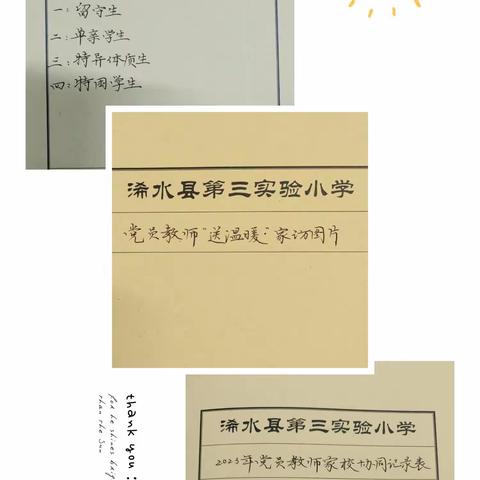 一：留守生
二：单亲学生
三：特异体质生
四：特困学生
浠水县第三实验小学
党员教师“送温暖”家访图片
thank you :
for he shines brig
than the Sun
浠水县第三实验小学
2023年党员教师家校协同记录表